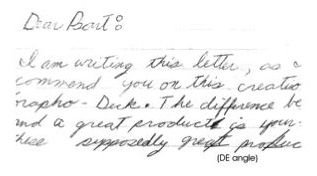 Dear Bart:
I am writing this letter, as a
commend you on this creatio
rapho-Duck. The difference be
nd a great product is your
hese supposedly great produc
(DE angle)